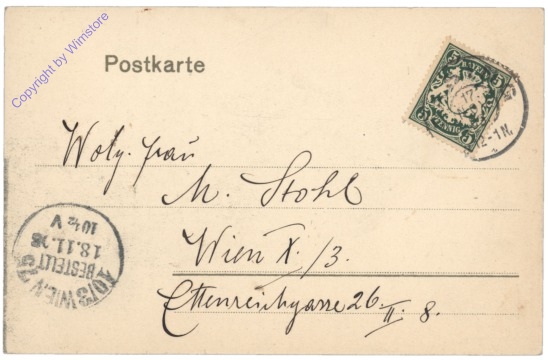 Copyright by Wimstore
Postkarte
5 BAYERN 5
5 PFENNIG 5
17.
12-1N.
Wolg. Frau
M. Stohl
Wien X./3.
Ettenreichgasse 26
II. 8.
10/3 WIEN
BESTELLT
18.11.
10½ V